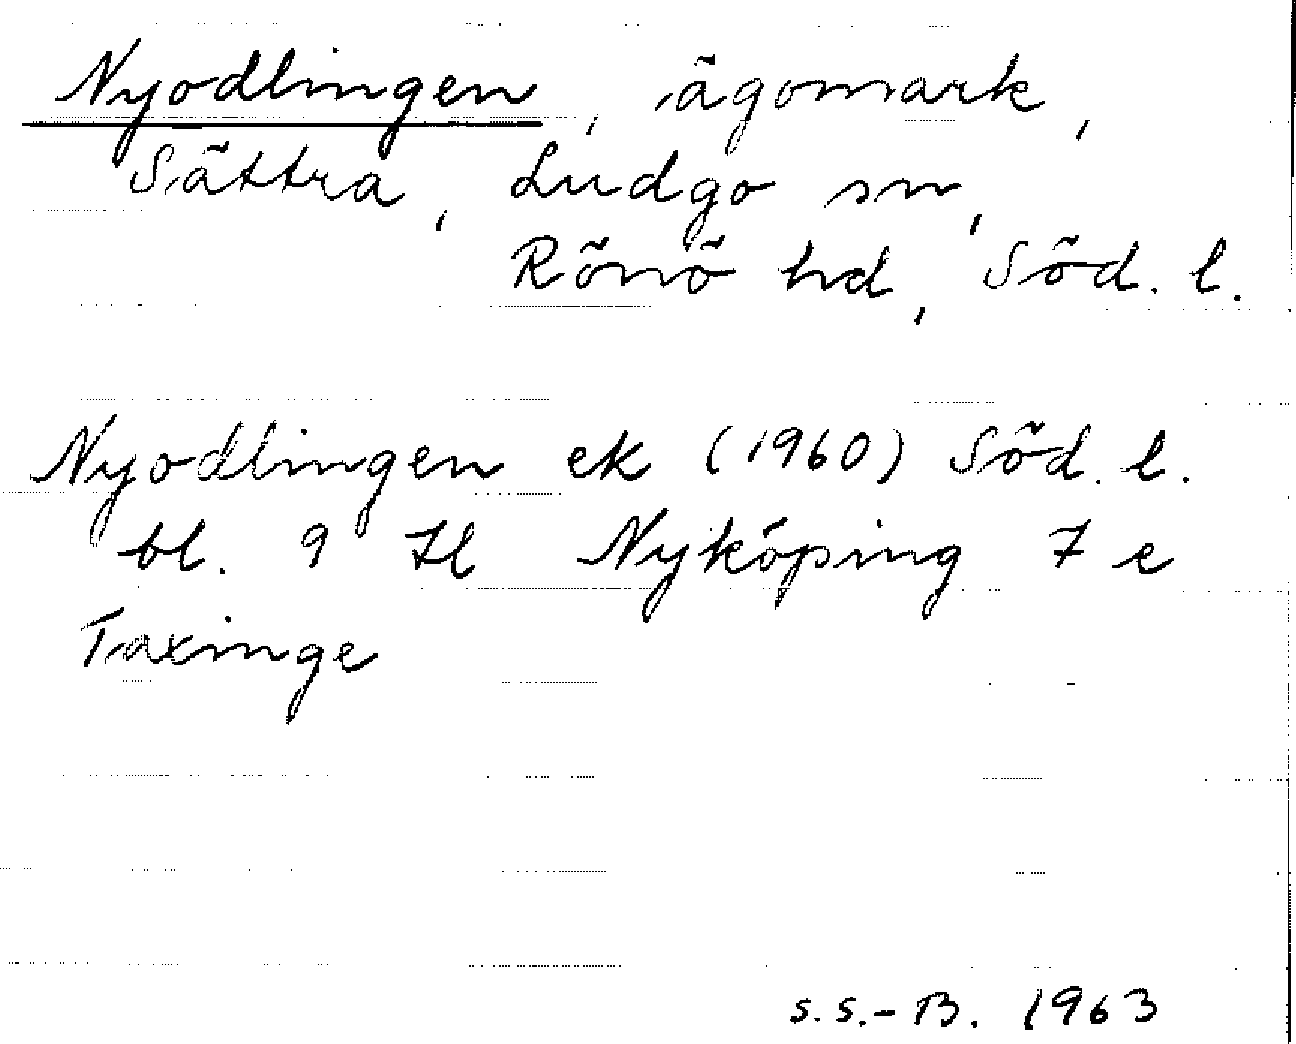 Nyodlingen, ägomark,
Sättra, Ludgo sn,
Rönö hd, Söd. l.
Nyodlingen ek (1960) Söd. l.
bl. 9 Nyköping 7 e
Taxinge
S.S.-B. 1963